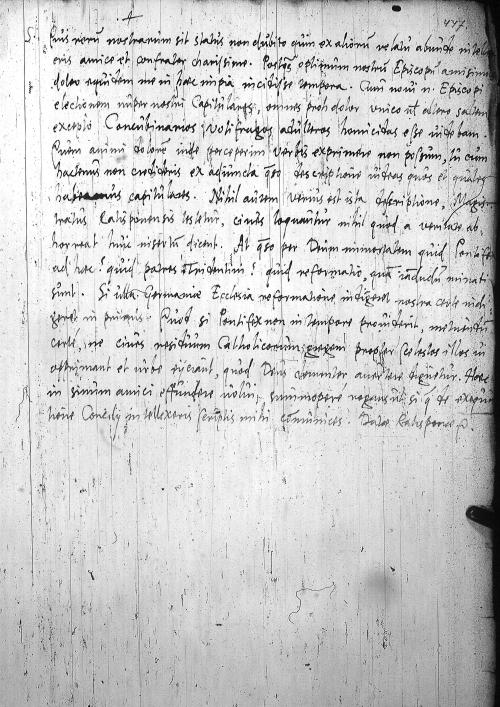 447.
rerum nostrarum sit status non dubito quin ex aliorum relatu abunde
eris amice et confrater charissime. Postq̃ optimum nostrũ Episcopũ amisimus
doleo equidem me in haec impia incidisse tempora. Cum novi n. Episcopi
electionem nuper nostri Capitulares, omnes proh dolor unico vel altero saltem
excepto Concubinarios, votifragos adulteros homicidas esse videbam.
Quem animi dolorem inde perceperim verbis exprimere non possum, tu cum
hactenus non credideris ex adiuncta descriptione videas quos et quales
habeamus capitulares. Nihil autem verius est ista descriptione, Magist
tratus Ratisponensis testetur, cives loquantur nihil quod a veritate ab
horreat huic insertum dicent. At per Deum immortalem quid Pontifex
ad haec? quid patres Tridentini? quid reformatio, quam iamdudum minati
sunt. Si ulla Germaniae Ecclesia reformatione indiget nostra certe indi
geret in primis. Quod si Pontifex non in tempore providerit, metuendũ
certe, ne cives residuum Catholicorum gregem propter scelestos illos
opprimant et urbe eiiciant, quod Deus clementer avertere dignetur. Haec
in sinum amici effundere volui, summopere rogans ut si q̃ de
tione Concilii intellexeris scriptis mihi cõmunices. Datae Ratisponae